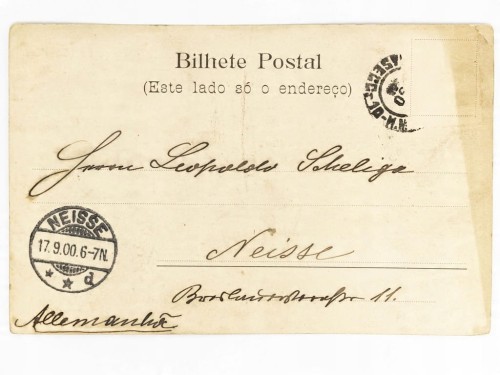 Bilhete Postal
(Este lado só o endereço)
Herrn Leopoldo Scheliga
NEISSE
17.9.00.6-7N.
* * d
Neisse
Breslauerstrasse 11.
Allemanha